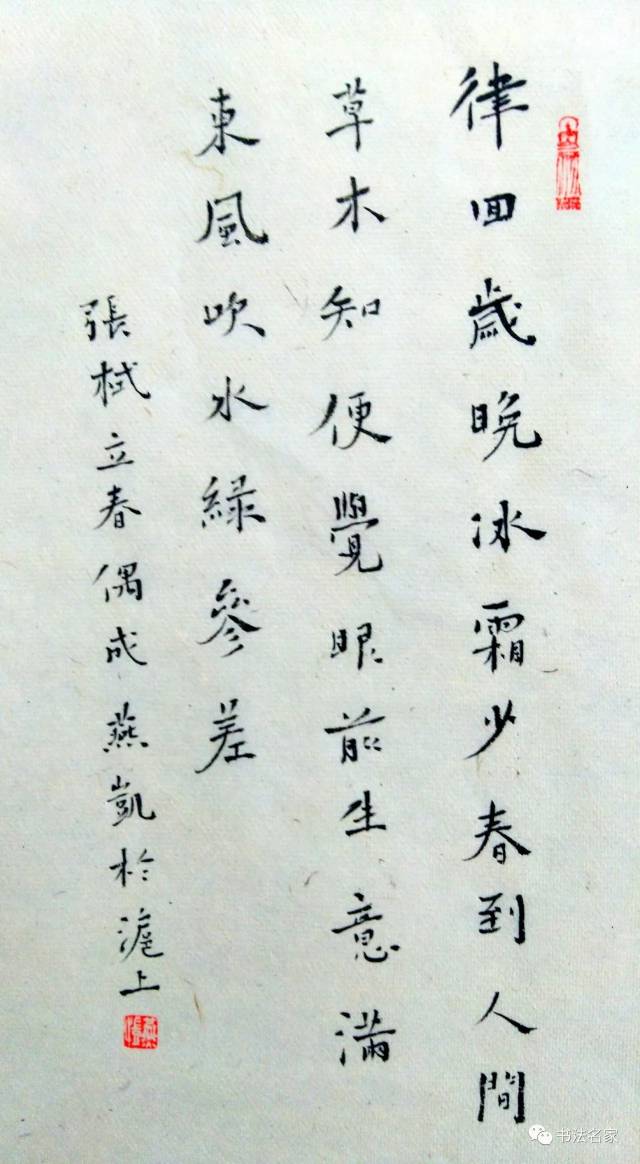 律回歲晚冰霜少春到人間
草木知便覺眼前生意滿
東風吹水綠參差
張栻立春偶成燕凱於滬上
书法名家